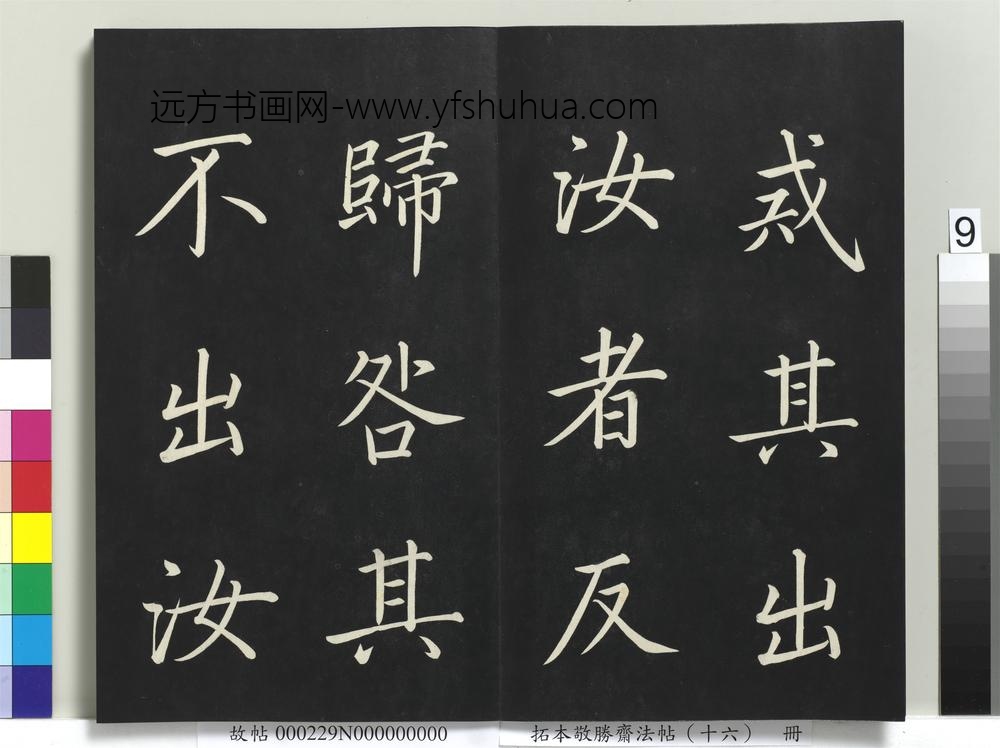 远方书画网-www.yfshuhua.com
其出
汝者反
歸咎其
不出汝
9
故帖 000229N000000000
拓本敬勝齋法帖（十六） 冊